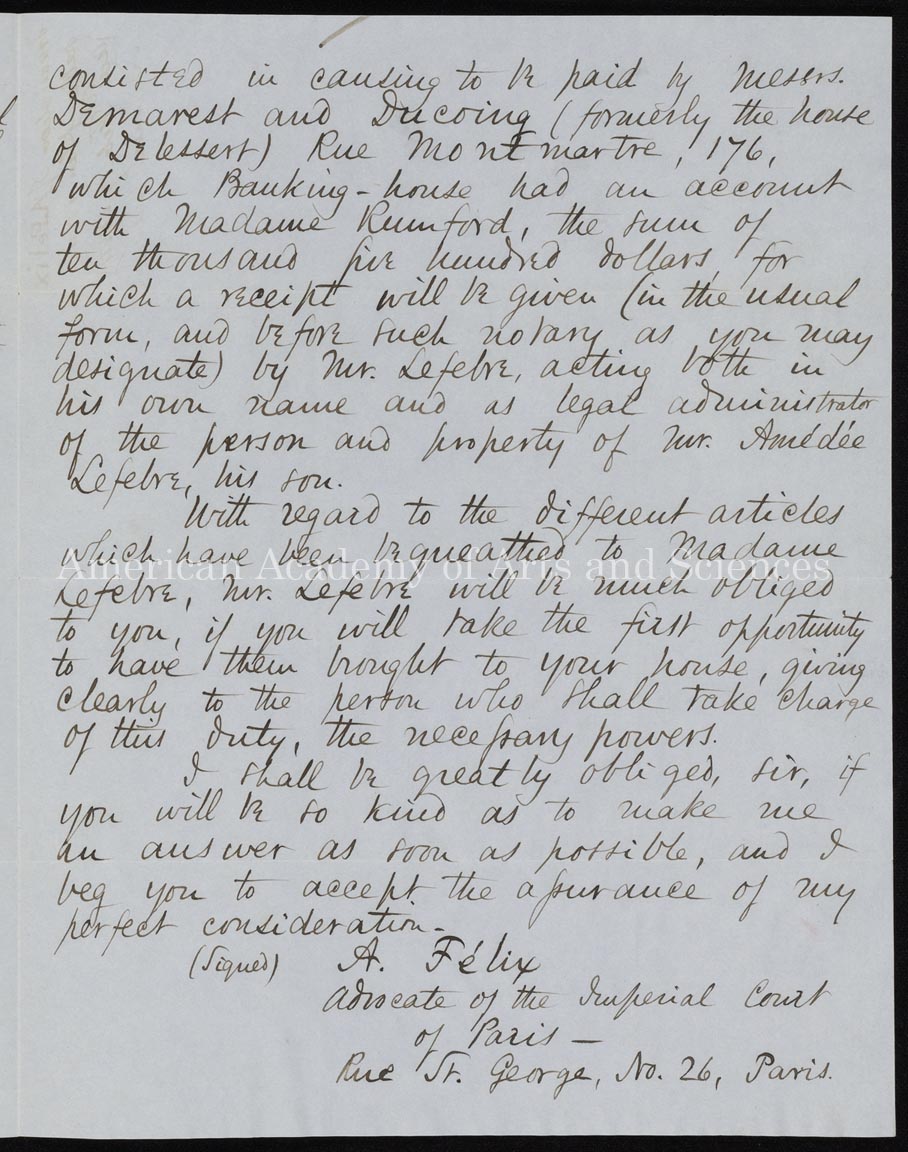 consisted in causing to be paid by Messrs.
Demarest and Ducoing (formerly the house
of Delessert) Rue Montmartre, 176,
which Banking-house had an account
with Madame Rumford, the sum of
ten thousand five hundred dollars, for
which a receipt will be given (in the usual
form, and before such notary as you may
designate) by Mr. Lefebre, acting both in
his own name and as legal administrator
of the person and property of Mr. Amédée
Lefebre, his son.
With regard to the different articles
which have been bequeathed to Madame
American Academy of Arts and Sciences
Lefebre, Mr. Lefebre will be much obliged
to you, if you will take the first opportunity
to have them brought to your house, giving
clearly to the person who shall take charge
of this duty, the necessary powers.
I shall be greatly obliged, sir, if
you will be so kind as to make me
an answer as soon as possible, and I
beg you to accept the assurance of my
perfect consideration.
(Signed) A. Félix
Advocate of the Imperial Court
of Paris —
Rue St. George, No. 26, Paris.